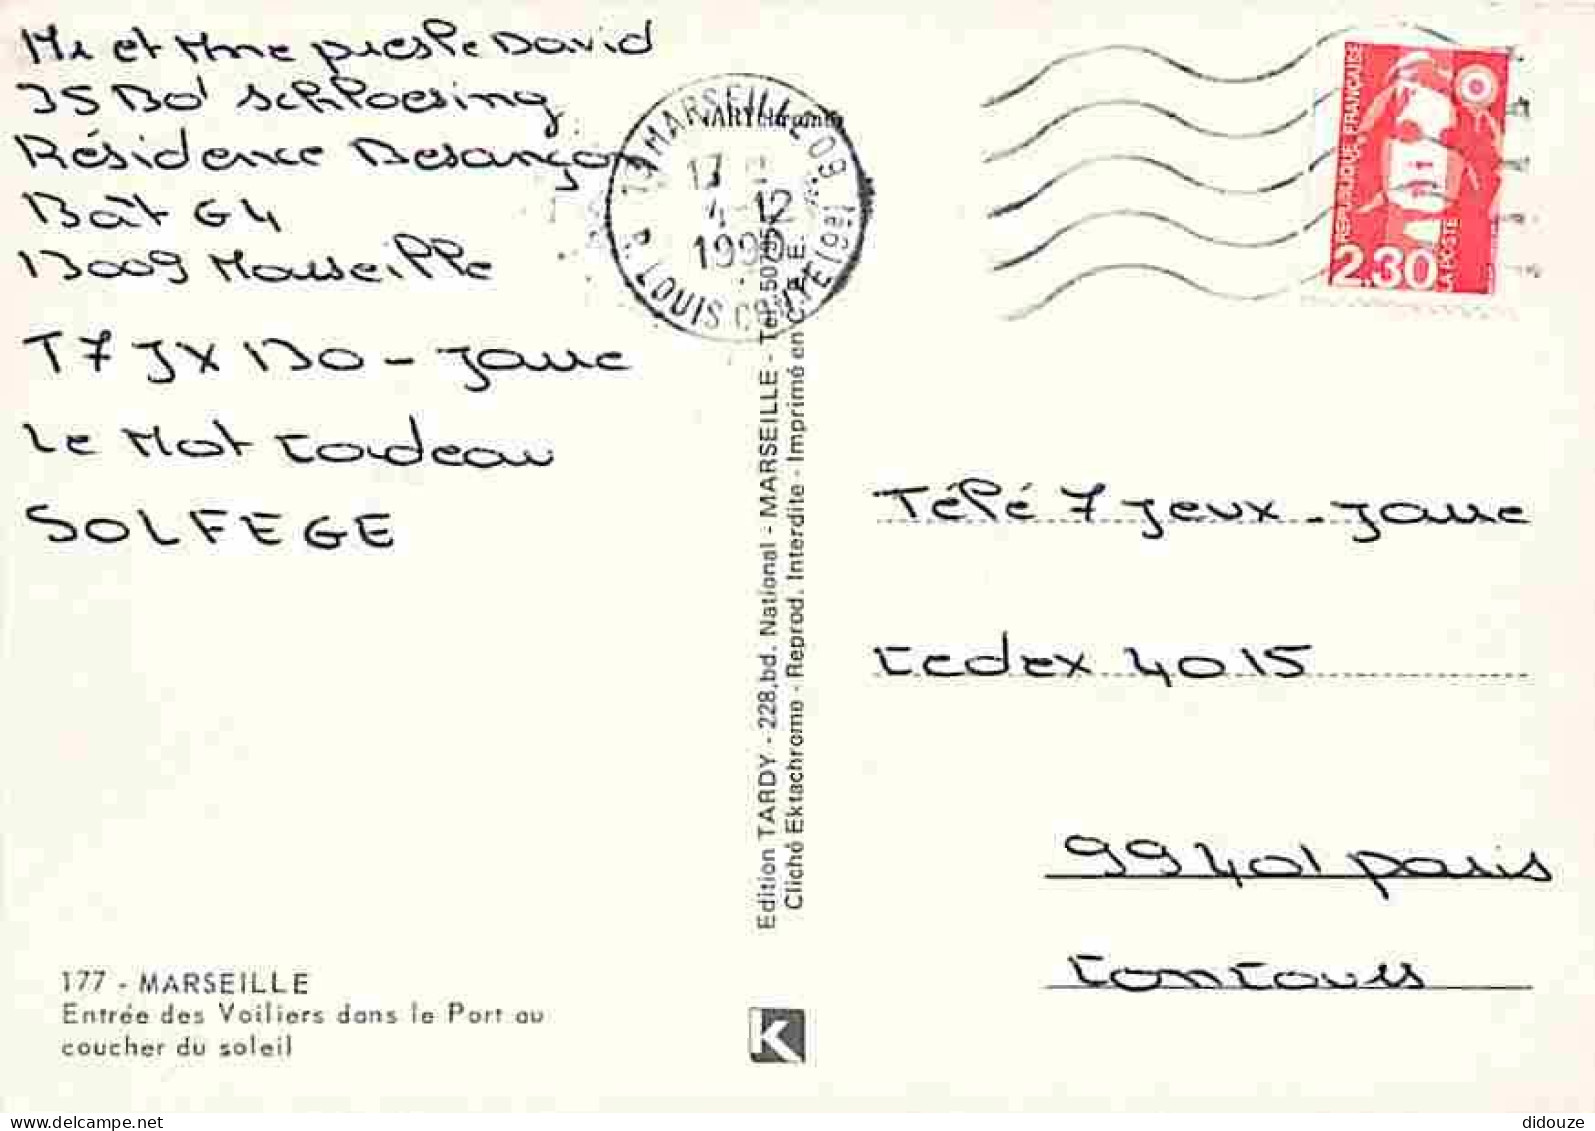 Mr et Mme Presle David
35 Bd Schloesing
Résidence Besançon
Bât G4
13009 Marseille
T7JX 130 - Jaune
Le Mot Cadeau
SOLFEGE
13 MARSEILLE 08
17 H
4-12
1990
R. LOUIS COMTE (8e)
REPUBLIQUE FRANÇAISE
2.30
LA POSTE
Télé 7 Jeux - Jaune
Cedex 4015
99401 Paris
Concours
Edition TARDY - 228,bd. National - MARSEILLE -
Cliché Ektachrome - Reprod. Interdite - Imprimé en
177 - MARSEILLE
Entrée des Voiliers dans le Port au
coucher du soleil
K
delcampe.net
didouze